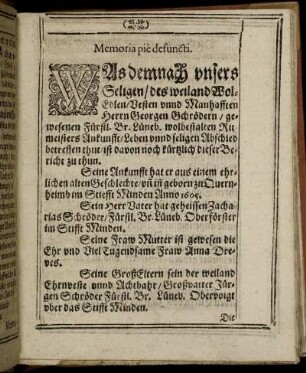 Memoria piè defuncti.
WAs demnach vnsers
Seligen/des weiland Wol-
Edlen/Vesten vnnd Manhafften
Herrn Georgen Schrödern/ ge-
wesenen Fürstl. Br. Lüneb. wolbestalten Rit-
meisters Ankunfft/Leben vnnd seligen Abschied
betreffen thut/ist davon noch kürtzlich dieser Be-
richt zu thun.
Seine Ankunfft hat er aus einem ehr-
lichen alten Geschlechte/vn̄ ist geborn zu Quern-
heimb im Stiefft Minden Anno 1605.
Sein Herr Vater hat geheissen Zacha-
rias Schröder/Fürstl. Br. Lüneb. Oberförster
im Stifft Minden.
Seine Fraw Mutter ist gewesen die
Ehr vnd Viel Tugendsame Fraw Anna Dre-
ves.
Seine GroßEltern sein der weiland
Ehrnveste vnnd Achtbahr/Großvatter Jür-
gen Schröder Fürstl. Br. Lüneb. Obervoigt
vber das Stifft Minden.
Die